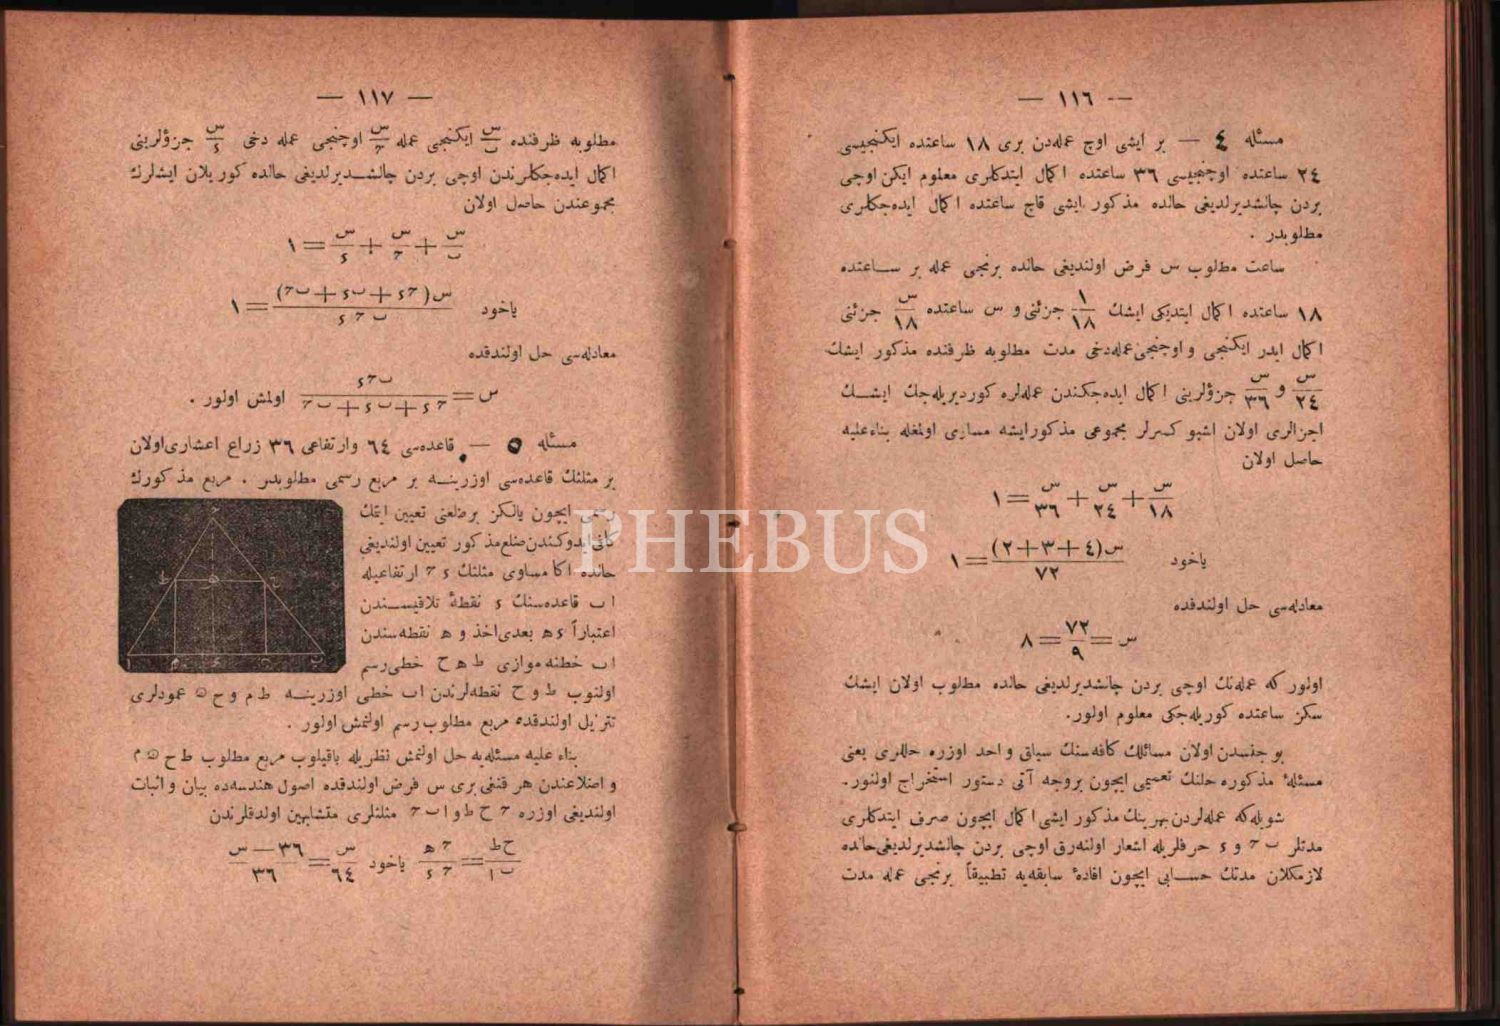 — ١١٦ —
مسئله ٤ — بر ایشی اوچ عمله‌دن بری ١٨ ساعتده ایکنجیسی
٢٤ ساعتده اوچنجیسی ٣٦ ساعتده اکمال ایتدکلری معلوم ایکن اوچی
بردن چالشدیرلدیغی حالده مذکور ایشی قاچ ساعتده اکمال ایده‌جکلری
مطلوبدر .
ساعت مطلوب س فرض اولندیغی حالده برنجی عمله بر ساعتده
١٨ ساعتده اکمال ایتدیکی ایشك ١/١٨ جزئنی و س ساعتده س/١٨ جزئنی
اکمال ایدر ایکنجی و اوچنجی عمله‌دخی مدت مطلوبه ظرفنده مذکور ایشك
س/٢٤ و س/٣٦ جزؤلرینی اکمال ایده‌جکندن عمله‌لره کوردیریله‌جك ایشك
اجزالری اولان اشبو کسرلر مجموعی مذکور ایشه مساوی اولمغله بناءعلیه
حاصل اولان
س/١٨ + س/٢٤ + س/٣٦ = ١
یاخود س(٤+٣+٢)/٧٢ = ١
معادله‌سی حل اولندقده
س = ٧٢/٩ = ٨
اولور که عمله‌نك اوچی بردن چالشدیرلدیغی حالده مطلوب اولان ایشك
سکز ساعتده کوریله‌جکی معلوم اولور.
بو جنسدن اولان مسائلك کافه‌سنك سیاق واحد اوزره حللری یعنی
مسئلهٔ مذکوره حلنك تعمیمی ایچون بروجه آتی دستور استخراج اولنور.
شویله‌که عمله‌لردن بهرینك مذکور ایشی اکمال ایچون صرف ایتدکلری
مدتلر ب ح و ء حرفلریله اشعار اولنه‌رق اوچی بردن چالشدیرلدیغی حالده
لازمکلان مدتك حسابی ایچون افادهٔ سابقه‌یه تطبیقاً برنجی عمله مدت
— ١١٧ —
مطلوبه ظرفنده س/ب ایکنجی عمله س/ح اوچنجی عمله دخی س/ء جزؤلرینی
اکمال ایده‌جکلرندن اوچی بردن چالشدیرلدیغی حالده کوریلان ایشلرك
مجموعندن حاصل اولان
س/ب + س/ح + س/ء = ١
یاخود س(حء+بء+بح)/ب ح ء = ١
معادله‌سی حل اولندقده
س = بحء/حء+بء+بح اولمش اولور .
مسئله ٥ — قاعده‌سی ٦٤ وارتفاعی ٣٦ زراع اعشاری اولان
بر مثلثك قاعده‌سی اوزرینه بر مربع رسمی مطلوبدر . مربع مذکورك
رسمی ایچون یالکز برضلعنی تعیین ایتمك
کافی ایدوکندن ضلع مذکور تعیین اولندیغی
حالده اکا مساوی مثلثك ء ح ارتفاعیله
ا ب قاعده‌سنك ء نقطهٔ تلاقیسندن
اعتباراً ء ه بعدی اخذ و ه نقطه‌سندن
ا ب خطنه موازی ط ه ح خطی رسم
اولنوب ط و ح نقطه‌لرندن ا ب خطی اوزرینه ط م و ح ن عمودلری
تنزیل اولندقده مربع مطلوب رسم اولنمش اولور .
بناء علیه مسئله‌یه حل اولنمش نظریله باقیلوب مربع مطلوب ط ح ن م
و اضلاعندن هر قنغی بری س فرض اولندقده اصول هندسه‌ده بیان و اثبات
اولندیغی اوزره ح ح ط و ا ب ح مثلثلری متشابهین اولدقلرندن
ح ط/ا ب = ح ه/ح ء یاخود س/٦٤ = ٣٦ — س/٣٦
PHEBUS